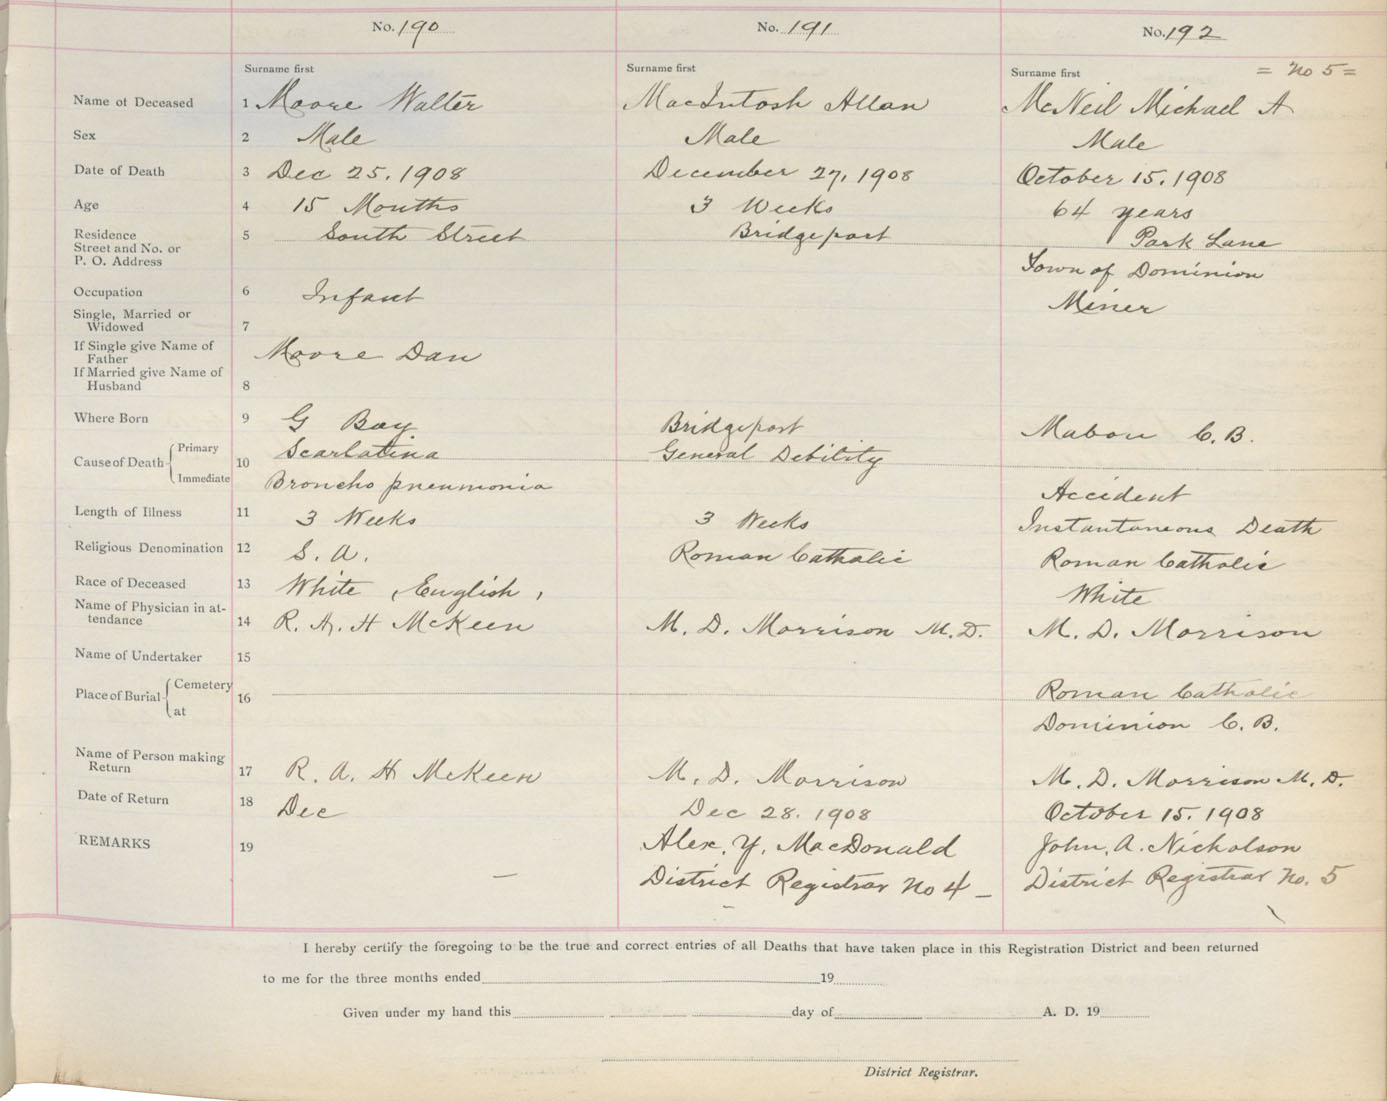 No. 190 No. 191 No. 192
Surname first Surname first Surname first = No 5 =
Name of Deceased 1 Moore Walter MacIntosh Allan McNeil Michael A
Sex 2 Male Male Male
Date of Death 3 Dec 25, 1908 December 27, 1908 October 15, 1908
Age 4 15 Months 3 Weeks 64 years
Residence 5 South Street Bridgeport Park Lane
Street and No. or
P. O. Address Town of Dominion
Occupation 6 Infant Miner
Single, Married or
Widowed 7
If Single give Name of
Father Moore Dan
If Married give Name of
Husband 8
Where Born 9 G Bay Bridgeport Mabou C. B.
Cause of Death Primary 10 Scarlatina General Debility
Immediate Broncho pneumonia Accident
Length of Illness 11 3 Weeks 3 Weeks Instantaneous Death
Religious Denomination 12 S. A. Roman Catholic Roman Catholic
Race of Deceased 13 White, English, White
Name of Physician in at-
tendance 14 R. A. H McKeen M. D. Morrison M.D. M. D. Morrison
Name of Undertaker 15
Place of Burial Cemetery 16 Roman Catholic
at Dominion C. B.
Name of Person making
Return 17 R. A. H McKeen M. D. Morrison M. D. Morrison M. D.
Date of Return 18 Dec Dec 28. 1908 October 15. 1908
REMARKS 19 Alex. Y. MacDonald John. A. Nicholson
— District Registrar No 4 — District Registrar No. 5
I hereby certify the foregoing to be the true and correct entries of all Deaths that have taken place in this Registration District and been returned
to me for the three months ended 19
Given under my hand this day of A. D. 19
District Registrar.